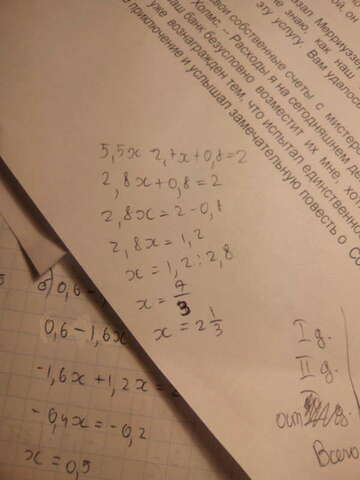 казал Мерриуэзер
не знаю, как наш
эту услугу. Вам удалось
свои собственные счеты с мистером
Холмс. – Расходы я на сегодняшнем де
наш банк безусловно возместит их мне, хот
уже вознагражден тем, что испытал единственно
приключение и услышал замечательную повесть о Со
5,5x 2,7x+0,8=2
2,8x+0,8=2
2,8x=2-0,8
2,8x=1,2
x=1,2:2,8
x=7/3
x=2 1/3
0,6-1,6x
-1,6x+1,2x=
-0,4x=-0,2
x=0,5
I д.
II д.
ост
Всего